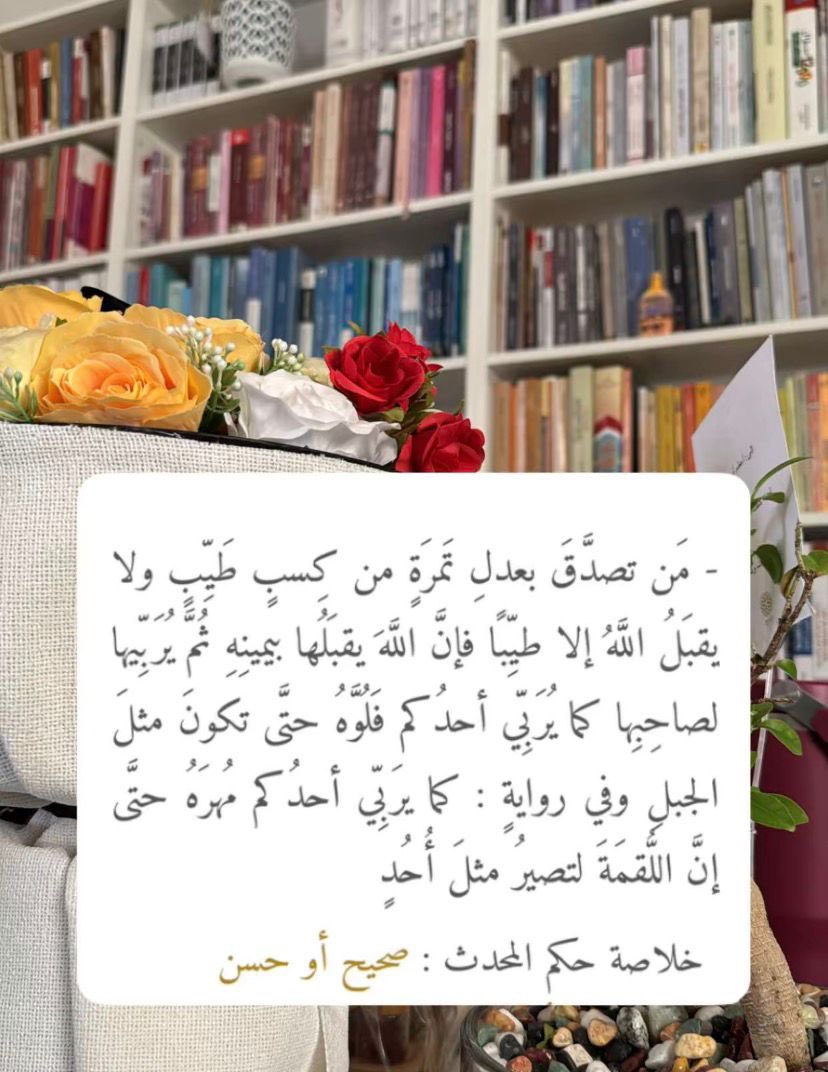 - مَن تصدَّقَ بعدلِ تَمرَةٍ من كِسبٍ طَيِّبٍ ولا
يقبَلُ اللَّهُ إلا طيِّبًا فإنَّ اللَّهَ يقبَلُها بيمينِهِ ثُمَّ يُرَبِّيها
لصاحِبِها كما يُرَبِّي أحدُكم فَلُوَّهُ حتَّى تكونَ مثلَ
الجبلِ وفي روايةٍ : كما يرَبِّي أحدُكم مُهرَهُ حتَّى
إنَّ اللُّقمَةَ لتصيرُ مثلَ أُحُدٍ
خلاصة حكم المحدث : صحيح أو حسن